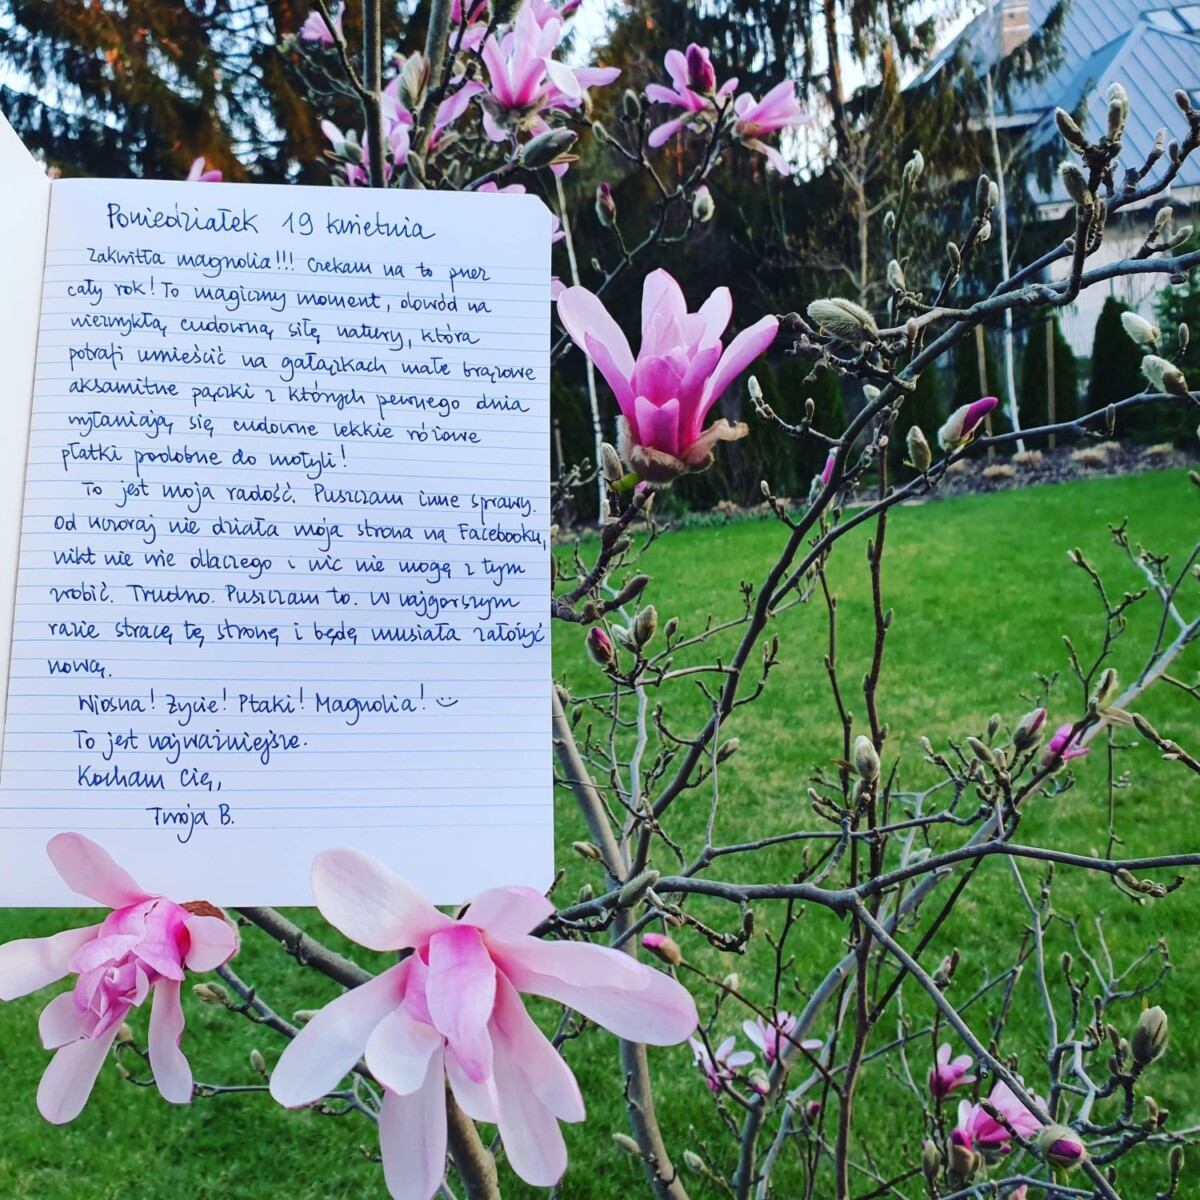 Poniedziałek 19 kwietnia
Zakwitła magnolia!!! Czekam na to przez
cały rok! To magiczny moment, dowód na
niezwykłą cudowną siłę natury, która
potrafi umieścić na gałązkach małe brązowe
aksamitne pączki z których pewnego dnia
wyłaniają się cudowne lekkie różowe
płatki podobne do motyli!
To jest moja radość. Puszczam inne sprawy.
Od wczoraj nie działa moja strona na Facebooku,
nikt nie wie dlaczego i nic nie mogę z tym
zrobić. Trudno. Puszczam to. W najgorszym
razie stracę tę stronę i będę musiała założyć
nową.
Wiosna! Życie! Ptaki! Magnolia! :)
To jest najważniejsze.
Kocham Cię,
Twoja B.